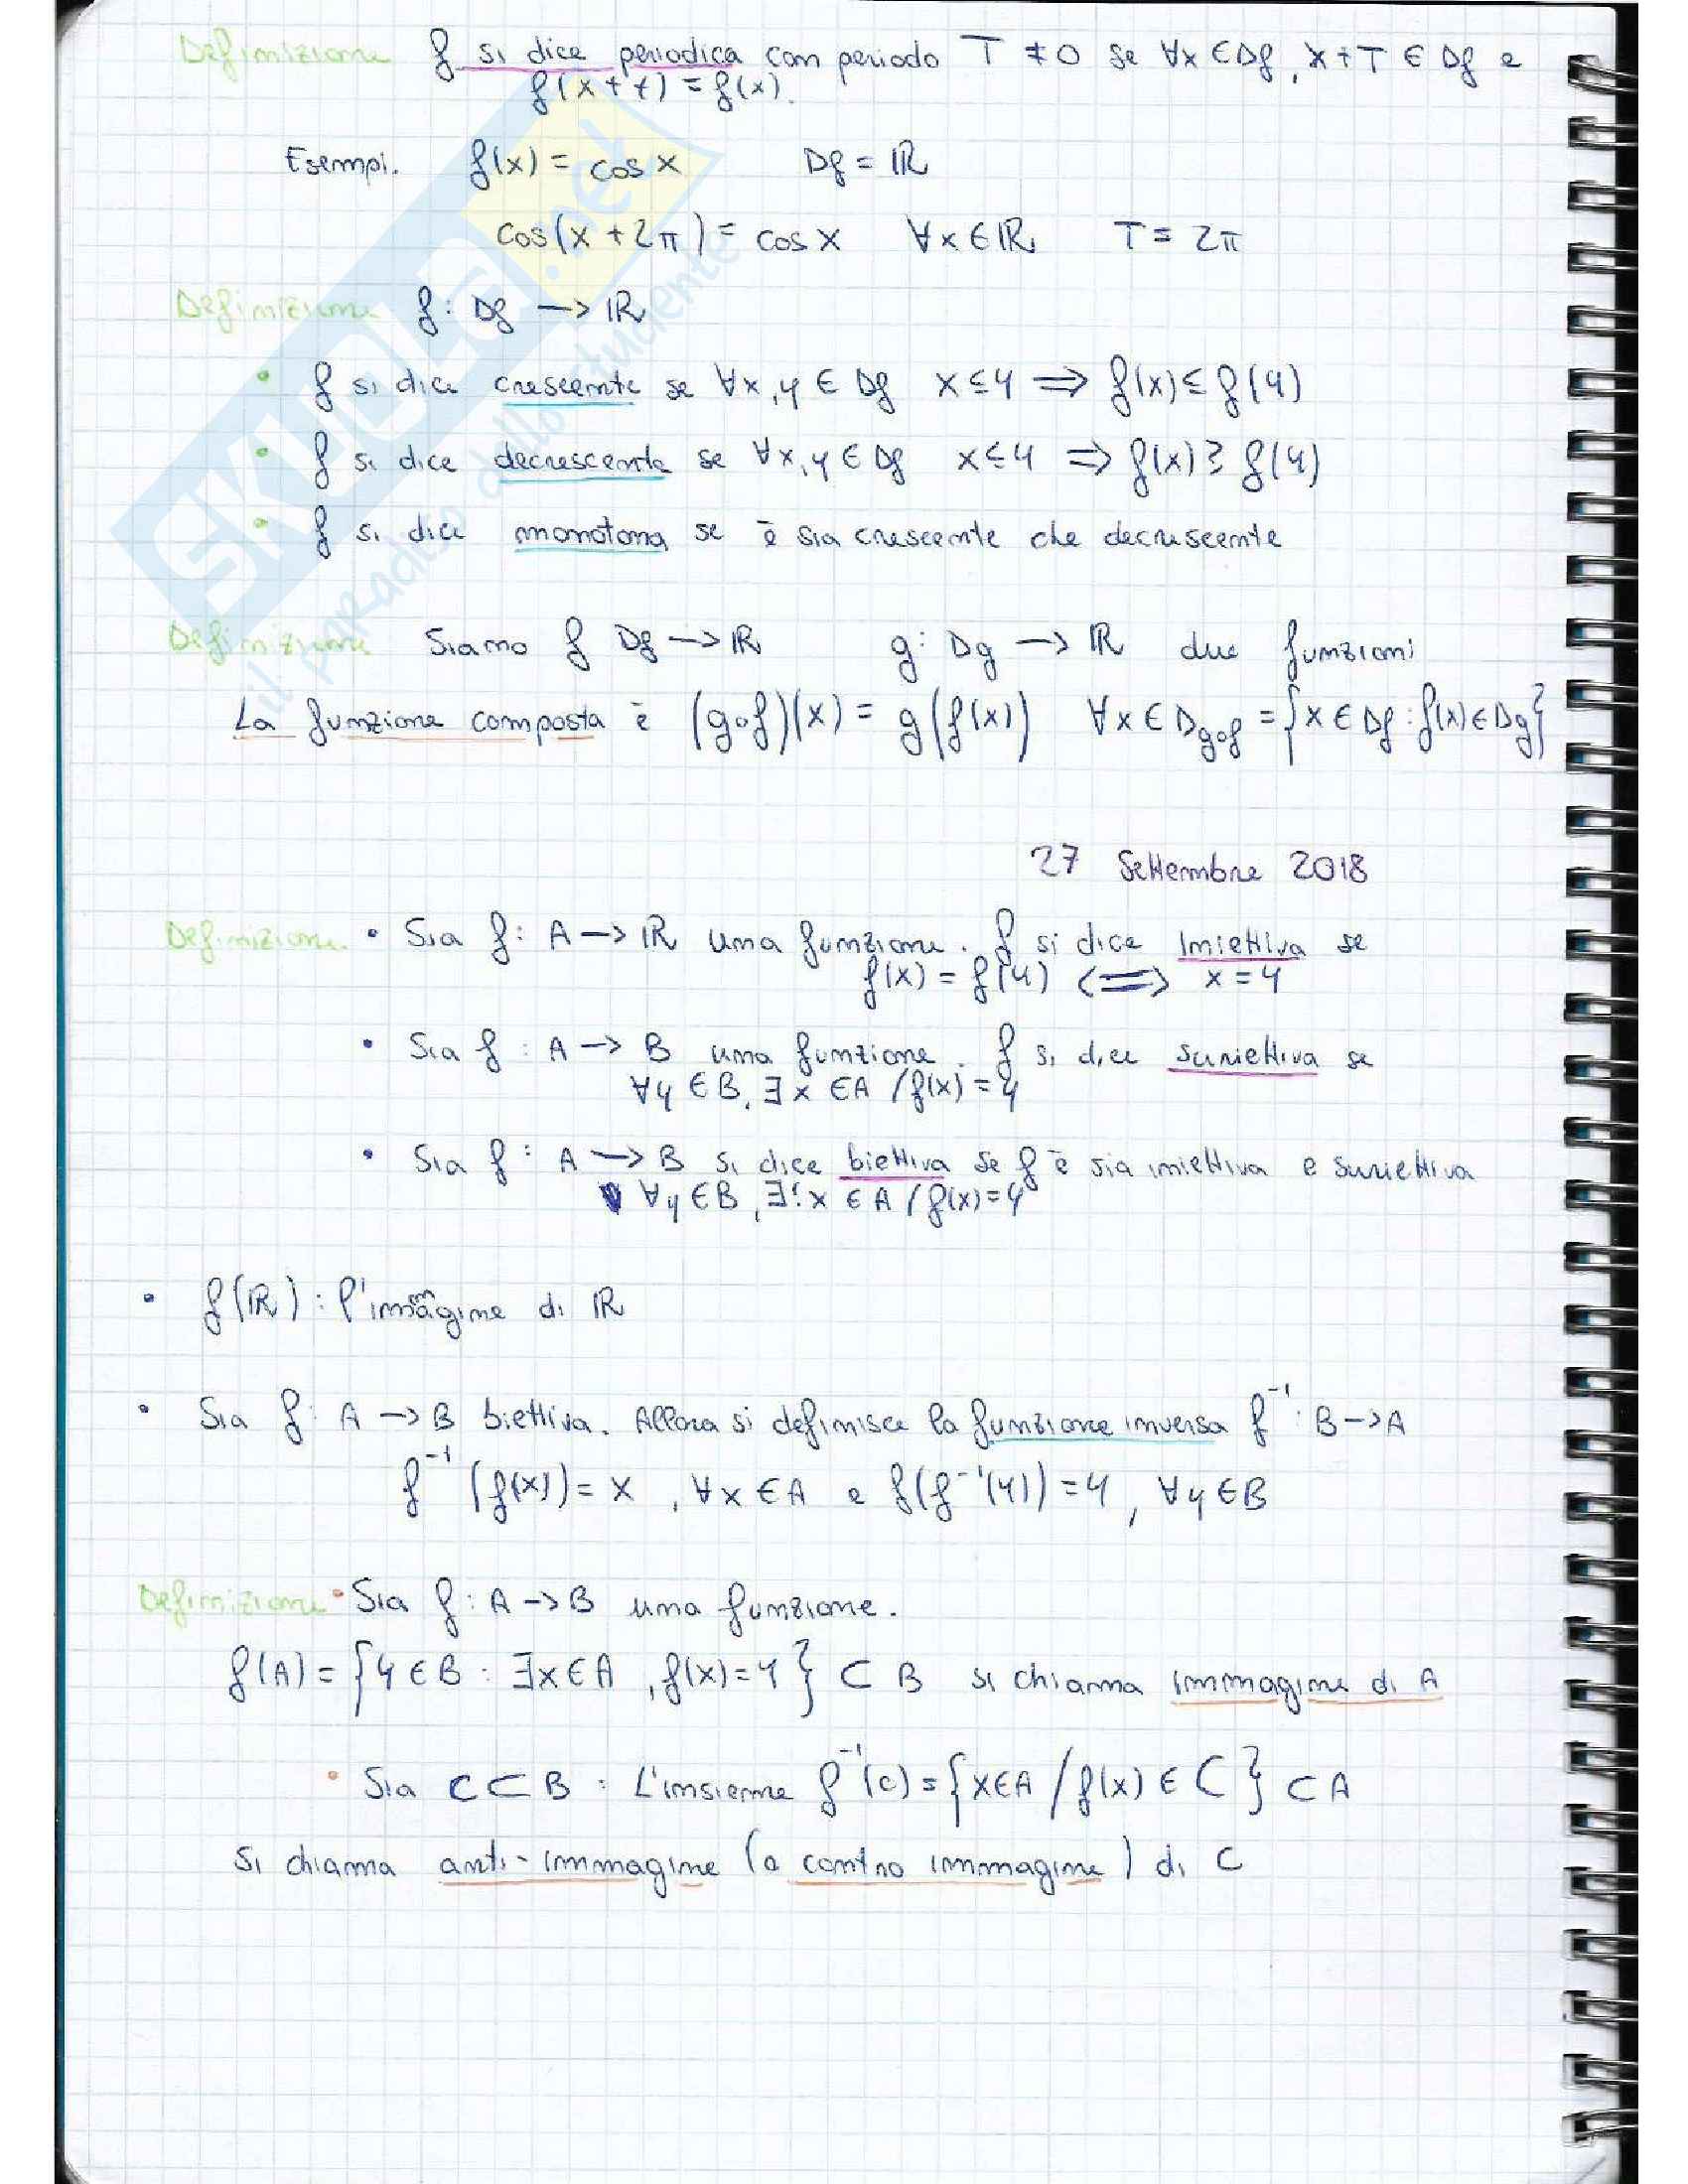 Definizione f si dice periodica con periodo T ≠ 0 se ∀x ∈ Df, x+T ∈ Df e
f(x+t) = f(x).
Esempi. f(x) = cos x Df = ℝ
cos(x+2π) = cos x ∀x ∈ ℝ T = 2π
Definizione f: Df → ℝ
• f si dice crescente se ∀x,y ∈ Df x≤y ⟹ f(x)≤f(y)
• f si dice decrescente se ∀x,y ∈ Df x≤y ⟹ f(x)≥f(y)
• f si dice monotona se è sia crescente che decrescente
Definizione Siano f Df → ℝ g: Dg → ℝ due funzioni
La funzione composta è (g∘f)(x) = g(f(x)) ∀x ∈ Dg∘f = {x ∈ Df : f(x) ∈ Dg}
27 Settembre 2018
Definizione • Sia f: A → ℝ una funzione. f si dice iniettiva se
f(x) = f(y) ⟺ x = y
• Sia f: A → B una funzione. f si dice suriettiva se
∀y ∈ B, ∃x ∈ A / f(x) = y
• Sia f: A → B si dice biettiva se f è sia iniettiva e suriettiva
∀y ∈ B, ∃!x ∈ A / f(x)=y
• f(ℝ): l'immagine di ℝ
• Sia f: A → B biettiva. Allora si definisce la funzione inversa f⁻¹: B → A
f⁻¹(f(x)) = x, ∀x ∈ A e f(f⁻¹(y)) = y, ∀y ∈ B
Definizione • Sia f: A → B una funzione.
f(A) = {y ∈ B : ∃x ∈ A, f(x) = y} ⊂ B si chiama immagine di A
• Sia C ⊂ B : L'insieme f⁻¹(C) = {x ∈ A / f(x) ∈ C} ⊂ A
si chiama anti-immagine (o contro immagine) di C
SKUOLA.net
il paradiso dello studente